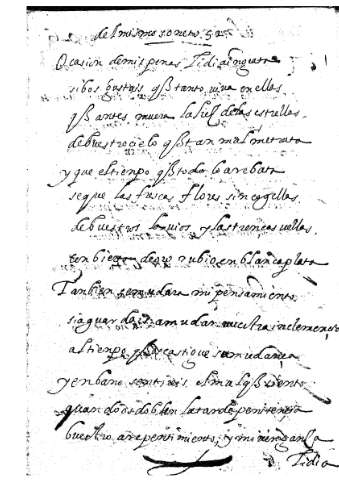 del mismo soneto 52
Ocasion de mis penas Lidia ingrata
si bos gustais q tanto viva en ellas
q antes muera la luz de las estrellas
de buestro cielo q tan mal me trata
y que el tienpo q todo lo arebata
seque las frescas flores sin cogellas
de buestros lavios y las trenças vellas
conbierta de oro rubio en blanca plata
Tanbien se mudara mi pensamiento
si aguardais a mudar vuestra inclemençia
al tienpo q castigue su mudança
y en bano sentireis el mal q siento
quando os doblen la tarde penitençia
buestro arepentimiento, y mi vengança
Lidia